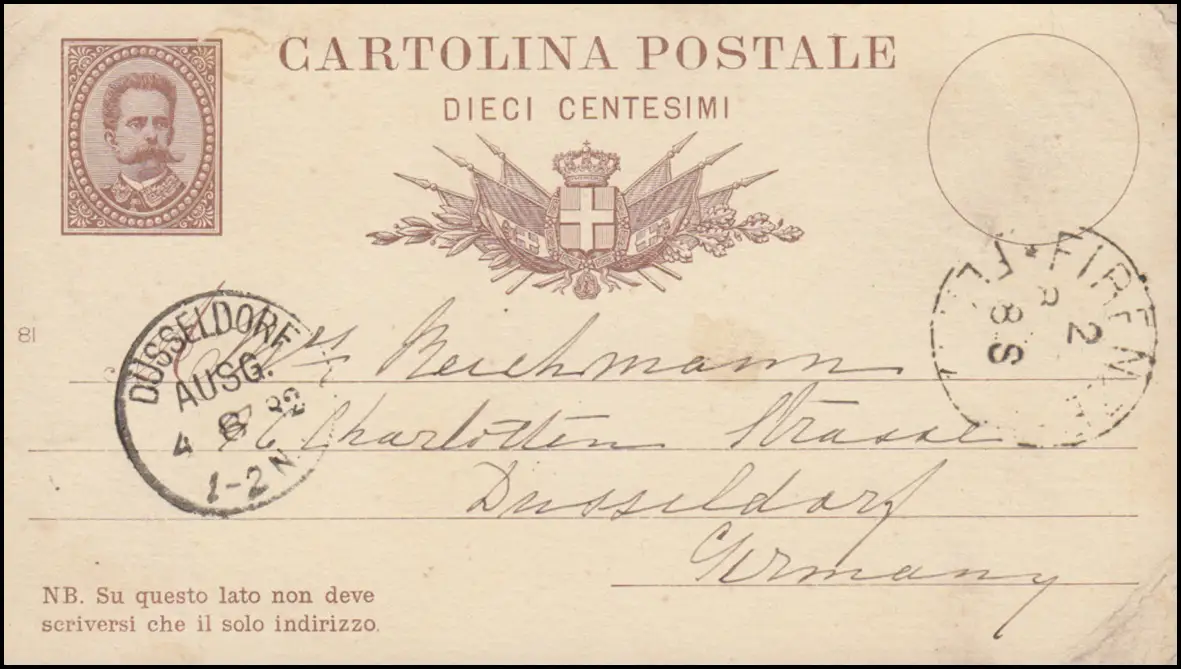 CARTOLINA POSTALE
DIECI CENTESIMI
FIRENZE
2
8 S
81
DÜSSELDORF
AUSG.
4 8 82
1-2 N.
Mrs Reichmann
Charlotten Strasse
Dusseldorf
Germany
NB. Su questo lato non deve
scriversi che il solo indirizzo.